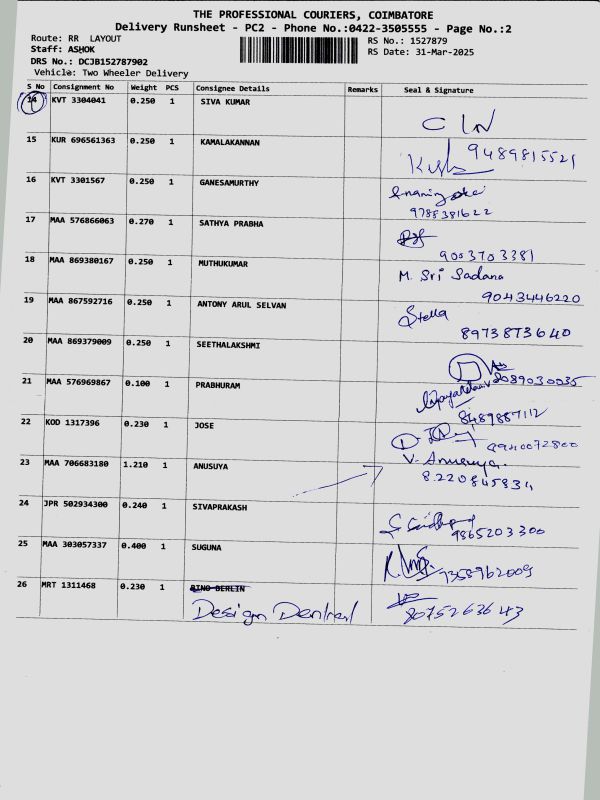 THE PROFESSIONAL COURIERS, COIMBATORE
Delivery Runsheet - PC2 - Phone No.:0422-3505555 - Page No.:2
Route: RR LAYOUT
RS No.: 1527879
Staff: ASHOK
RS Date: 31-Mar-2025
DRS No.: DCJB152787902
Vehicle: Two Wheeler Delivery
S No Consignment No Weight PCS Consignee Details Remarks Seal & Signature
14 KVT 3304041 0.250 1 SIVA KUMAR
15 KUR 696561363 0.250 1 KAMALAKANNAN 9489815521
16 KVT 3301567 0.250 1 GANESAMURTHY
9788381622
17 MAA 576866063 0.270 1 SATHYA PRABHA
9003703381
18 MAA 869380167 0.250 1 MUTHUKUMAR M. Sri Sadana
9043446220
19 MAA 867592716 0.250 1 ANTONY ARUL SELVAN Stella
8973873640
20 MAA 869379009 0.250 1 SEETHALAKSHMI
21 MAA 576969867 0.100 1 PRABHURAM
8489887112
22 KOD 1317396 0.230 1 JOSE
9940072800
23 MAA 706683180 1.210 1 ANUSUYA V. Anusuya.
24 JPR 502934300 0.240 1 SIVAPRAKASH
9865203300
25 MAA 303057337 0.400 1 SUGUNA
7358962009
26 MRT 1311468 0.230 1 BINO BERLIN
Design Dental 8075263643